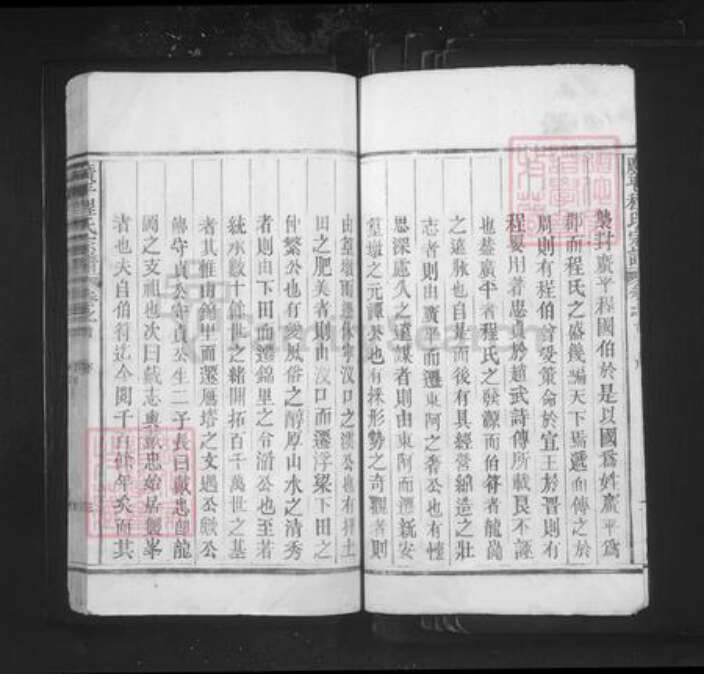 廣平程氏宗譜
襲封廣平程國伯於是以國為姓廣平為
郡而程氏之盛幾徧天下焉遞而傳之於
周則有程伯曾受策命於宣王於晉則有
程嬰用著忠貞於趙武詩傳所載良不誣
也蓋廣平者程氏之發源而伯符者龍崗
之遠脉也自是而後有具經營締造之壯
志者則由廣平而遷東阿之奢公也有懷
思深慮久之遠謀者則由東阿而遷新安
篁墩之元譚公也有採形勢之奇觀者則
由篁墩而遷休寧汊口之澐公也有擇土
田之肥美者則由汊口而遷浮梁下田之
仲繁公也有愛風俗之醇厚山水之清秀
者則由下田而遷錦里之令滔公也至若
統承數十餘世之緒開拓百千萬世之基
者其惟由錦里而遷鳳塔之文遇公歟公
傳守貞公守貞公生二子長曰獻忠卽龍
岡之支祖也次曰獻志與獻忠始居
者也夫自伯符迄今閱千百餘年矣而其
廣平程氏宗譜